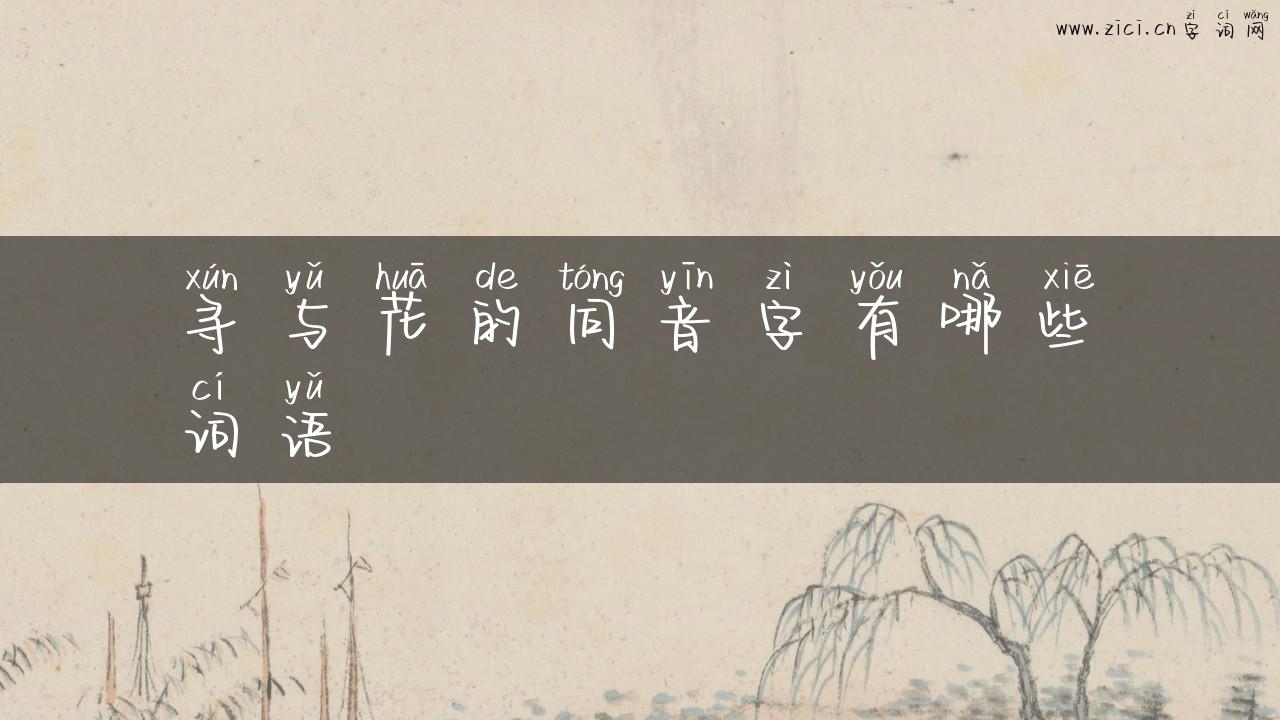 zì cí wǎng
www.zici.cn 字词网
xún yǔ huā de tóng yīn zì yǒu nǎ xiē
寻与花的同音字有哪些
cí yǔ
词语